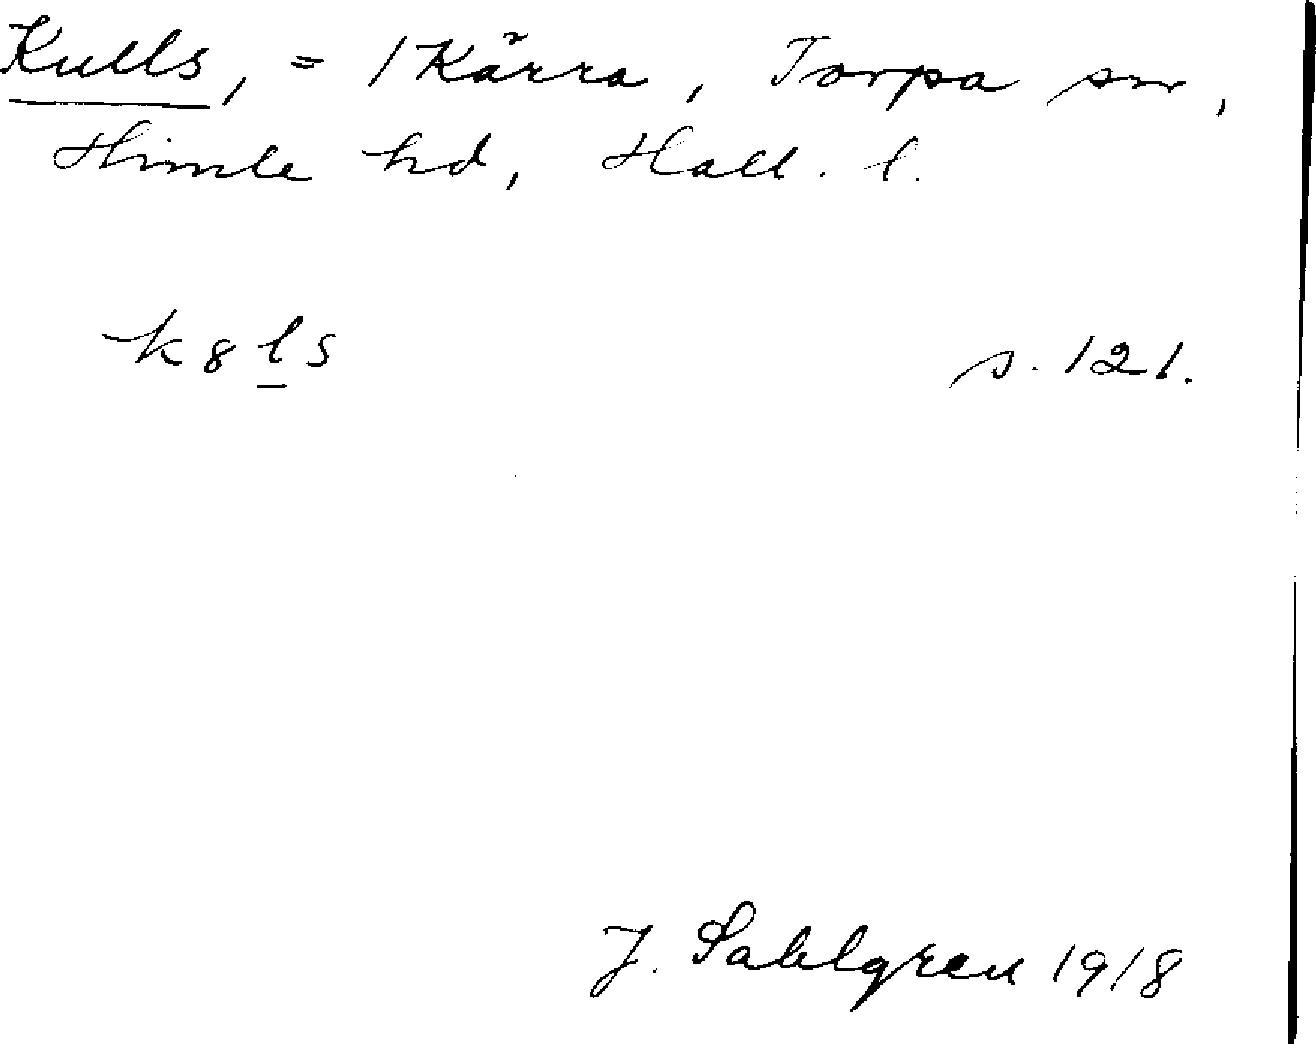 Kulls, = 1 Kärra, Torpa sn,
Himle hd, Hall. l.
k8ls s. 121.
J. Sahlgren 1918